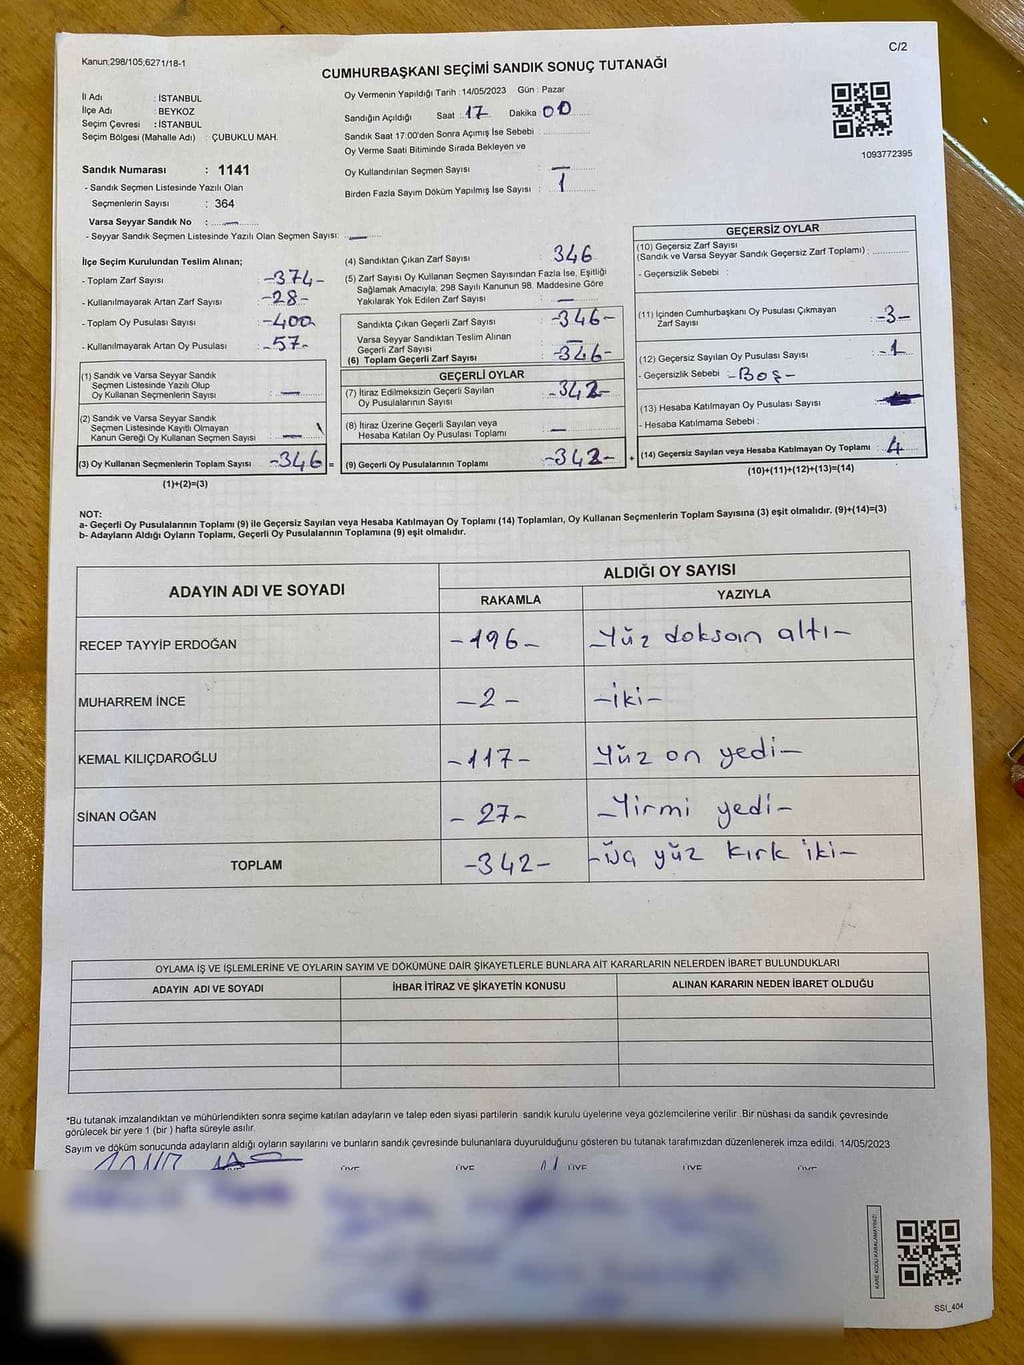 Kanun;298/105;6271/18-1
C/2
CUMHURBAŞKANI SEÇİMİ SANDIK SONUÇ TUTANAĞI
İl Adı : İSTANBUL
İlçe Adı : BEYKOZ
Seçim Çevresi : İSTANBUL
Seçim Bölgesi (Mahalle Adı) : ÇUBUKLU MAH.
Sandık Numarası : 1141
- Sandık Seçmen Listesinde Yazılı Olan
Seçmenlerin Sayısı : 364
Varsa Seyyar Sandık No : —
- Seyyar Sandık Seçmen Listesinde Yazılı Olan Seçmen Sayısı: —
Oy Vermenin Yapıldığı Tarih : 14/05/2023 Gün : Pazar
Sandığın Açıldığı Saat : 17 Dakika 00
Sandık Saat 17:00'den Sonra Açımış İse Sebebi :
Oy Verme Saati Bitiminde Sırada Bekleyen ve
Oy Kullandırılan Seçmen Sayısı : —
Birden Fazla Sayım Döküm Yapılmış İse Sayısı : 1
1093772395
İlçe Seçim Kurulundan Teslim Alınan;
- Toplam Zarf Sayısı : -374-
- Kullanılmayarak Artan Zarf Sayısı : -28-
- Toplam Oy Pusulası Sayısı : -400-
- Kullanılmayarak Artan Oy Pusulası : -57-
(1) Sandık ve Varsa Seyyar Sandık
Seçmen Listesinde Yazılı Olup
Oy Kullanan Seçmenlerin Sayısı : —
(2) Sandık ve Varsa Seyyar Sandık
Seçmen Listesinde Kayıtlı Olmayan
Kanun Gereği Oy Kullanan Seçmen Sayısı : —
(3) Oy Kullanan Seçmenlerin Toplam Sayısı -346-
(1)+(2)=(3)
(4) Sandıktan Çıkan Zarf Sayısı : 346
(5) Zarf Sayısı Oy Kullanan Seçmen Sayısından Fazla İse, Eşitliği
Sağlamak Amacıyla; 298 Sayılı Kanunun 98. Maddesine Göre
Yakılarak Yok Edilen Zarf Sayısı : —
Sandıkta Çıkan Geçerli Zarf Sayısı : -346-
Varsa Seyyar Sandıktan Teslim Alınan
Geçerli Zarf Sayısı : —
(6) Toplam Geçerli Zarf Sayısı : -346-
GEÇERLİ OYLAR
(7) İtiraz Edilmeksizin Geçerli Sayılan
Oy Pusulalarının Sayısı : -342-
(8) İtiraz Üzerine Geçerli Sayılan veya
Hesaba Katılan Oy Pusulası Toplamı : —
= (9) Geçerli Oy Pusulalarının Toplamı : -342-
GEÇERSİZ OYLAR
(10) Geçersiz Zarf Sayısı
(Sandık ve Varsa Seyyar Sandık Geçersiz Zarf Toplamı) :
- Geçersizlik Sebebi :
(11) İçinden Cumhurbaşkanı Oy Pusulası Çıkmayan
Zarf Sayısı : -3-
(12) Geçersiz Sayılan Oy Pusulası Sayısı : -1
- Geçersizlik Sebebi : -Boş-
(13) Hesaba Katılmayan Oy Pusulası Sayısı :
- Hesaba Katılmama Sebebi :
+ (14) Geçersiz Sayılan veya Hesaba Katılmayan Oy Toplamı : 4
(10)+(11)+(12)+(13)=(14)
NOT:
a- Geçerli Oy Pusulalarının Toplamı (9) ile Geçersiz Sayılan veya Hesaba Katılmayan Oy Toplamı (14) Toplamları, Oy Kullanan Seçmenlerin Toplam Sayısına (3) eşit olmalıdır. (9)+(14)=(3)
b- Adayların Aldığı Oyların Toplamı, Geçerli Oy Pusulalarının Toplamına (9) eşit olmalıdır.
ADAYIN ADI VE SOYADI
ALDIĞI OY SAYISI
RAKAMLA YAZIYLA
RECEP TAYYİP ERDOĞAN -196- -Yüz doksan altı-
MUHARREM İNCE -2- -iki-
KEMAL KILIÇDAROĞLU -117- -Yüz on yedi-
SİNAN OĞAN -27- -Yirmi yedi-
TOPLAM -342- -üç yüz kırk iki-
OYLAMA İŞ VE İŞLEMLERİNE VE OYLARIN SAYIM VE DÖKÜMÜNE DAİR ŞİKAYETLERLE BUNLARA AİT KARARLARIN NELERDEN İBARET BULUNDUKLARI
ADAYIN ADI VE SOYADI İHBAR İTİRAZ VE ŞİKAYETİN KONUSU ALINAN KARARIN NEDEN İBARET OLDUĞU
*Bu tutanak imzalandıktan ve mühürlendikten sonra seçime katılan adayların ve talep eden siyasi partilerin sandık kurulu üyelerine veya gözlemcilerine verilir .Bir nüshası da sandık çevresinde
görülecek bir yere 1 (bir ) hafta süreyle asılır.
Sayım ve döküm sonucunda adayların aldığı oyların sayılarını ve bunların sandık çevresinde bulunanlara duyurulduğunu gösteren bu tutanak tarafımızdan düzenlenerek imza edildi. 14/05/2023
ÜYE ÜYE ÜYE ÜYE ÜYE
KARE KODU KARALAMAYINIZ!
SSI_404